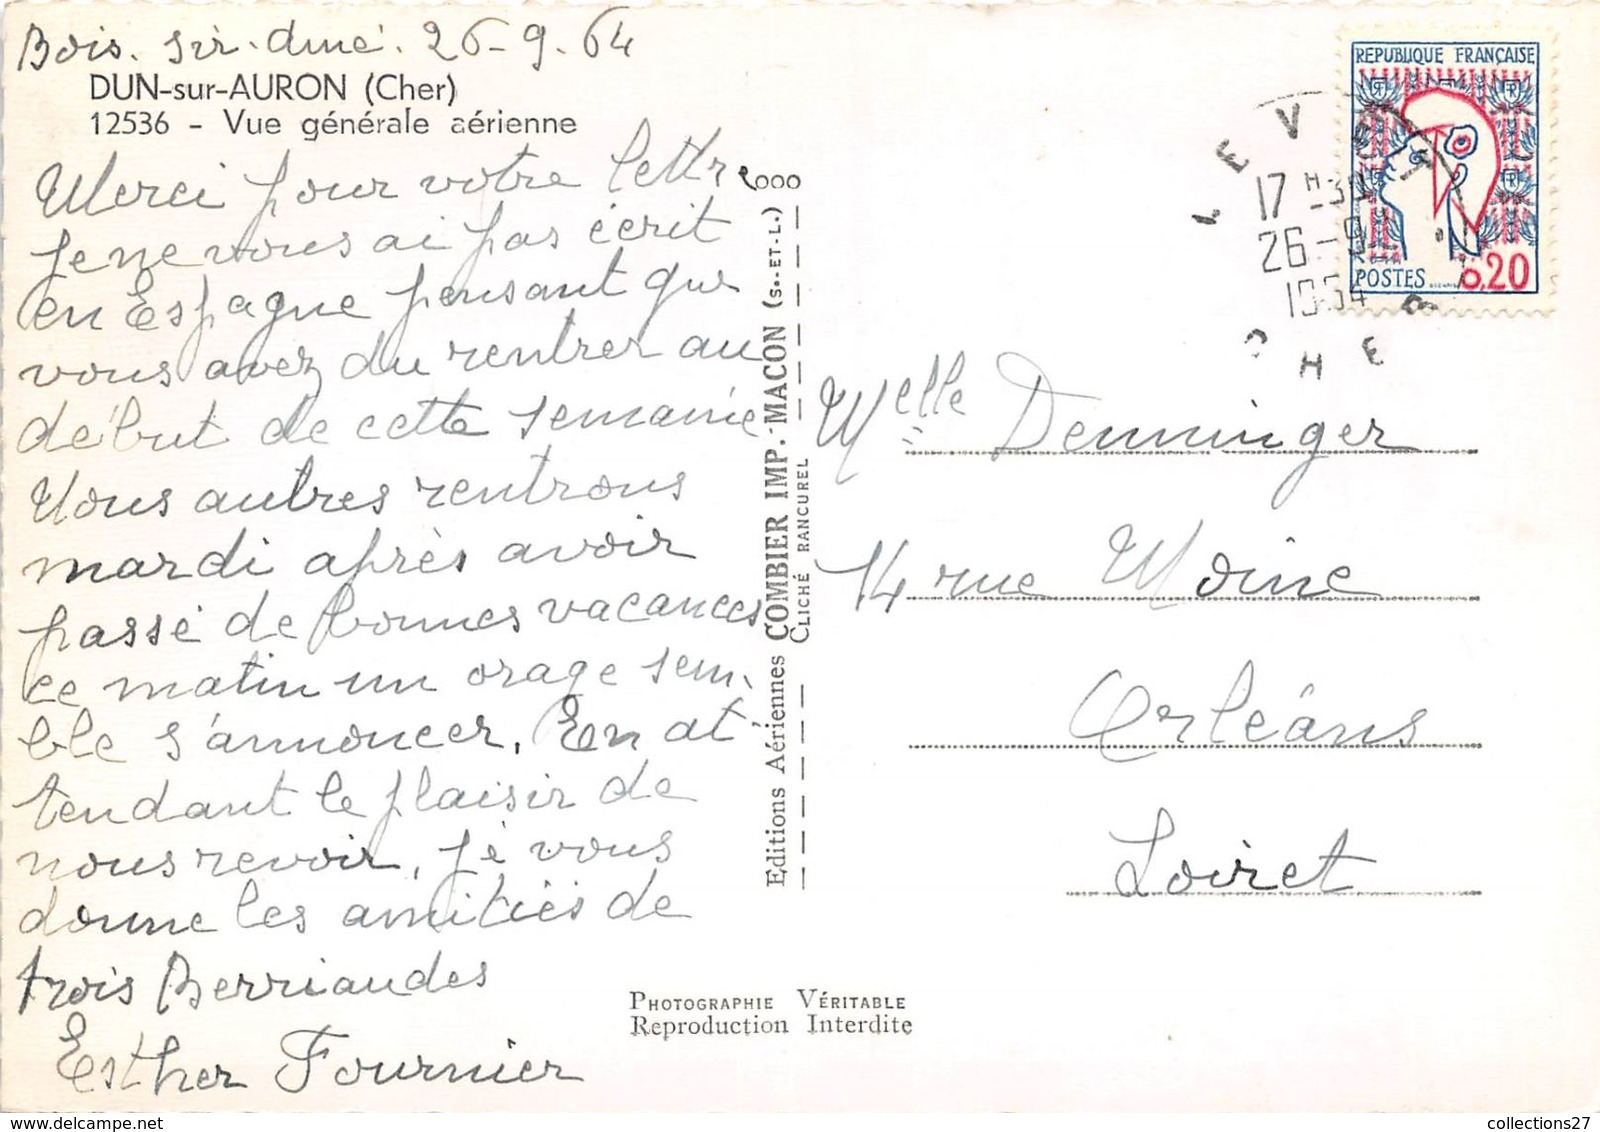 Bois. sir. amé. 26-9.64
DUN-sur-AURON (Cher)
12536 - Vue générale aérienne
Merci pour votre lettr
je ne vous ai pas écrit
en Espagne pensant que
vous avez du rentrer au
début de cette semaine
Nous autres rentrons
mardi après avoir
passé de bonnes vacances
ce matin un orage sem-
ble s'annoncer. En at
tendant le plaisir de
nous revoir, je vous
donne les amitiés de
trois Berriaudes
Esther Fournier
Editions Aériennes COMBIER IMP. MACON (S.-ET-L.)
CLICHÉ RANCUREL
PHOTOGRAPHIE VÉRITABLE
Reproduction Interdite
REPUBLIQUE FRANÇAISE
POSTES
0,20
LEVET
17 H 30
26-9
1964
CHER
Melle Denninger
14 rue Moine
Orléans
Loiret
collections27